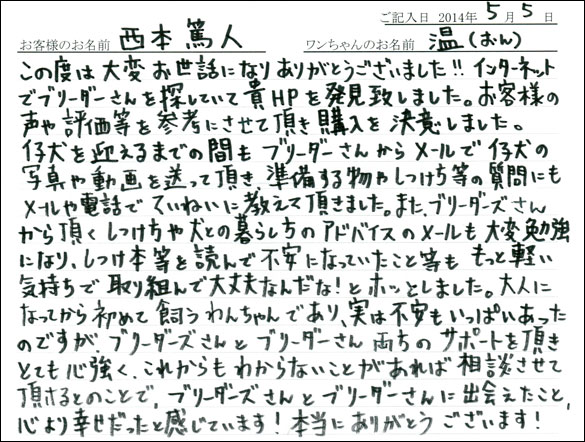 ご記入日 2014年 5月 5日
お客様のお名前 西本 篤人 ワンちゃんのお名前 温(おん)
この度は大変お世話になりありがとうございました!! インターネット
でブリーダーさんを探していて貴HPを発見致しました。お客様の
声や評価等を参考にさせて頂き購入を決意しました。
仔犬を迎えるまでの間もブリーダーさんからメールで仔犬の
写真や動画を送って頂き、準備する物やしつけ等の質問にも
メールや電話でていねいに教えて頂きました。また、ブリーダーズさん
から頂くしつけ方や犬との暮らし方のアドバイスのメールも大変勉強
になり、しつけ本等を読んで不安になっていたこと等ももっと軽い
気持ちで取り組んで大丈夫なんだな!とホッとしました。大人に
なってから初めて飼うわんちゃんであり、実は不安もいっぱいあった
のですが、ブリーダーズさんとブリーダーさん両方のサポートを頂き
とても心強く、これからもわからないことがあれば相談させて
頂けるとのことで、ブリーダーズさんとブリーダーさんに出会えたこと、
心より幸せだったと感じています!本当にありがとうございます!